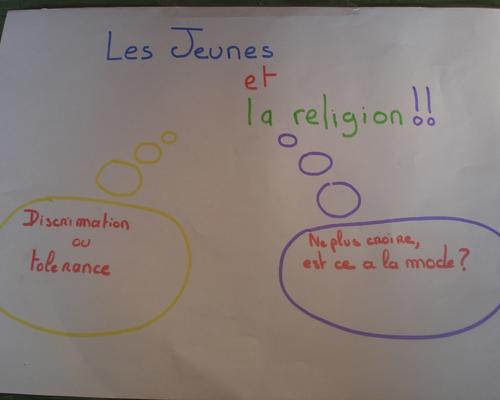 Les Jeunes
et
la religion !!
Discrimation
ou
tolerance
Ne plus croire,
est ce a la mode ?